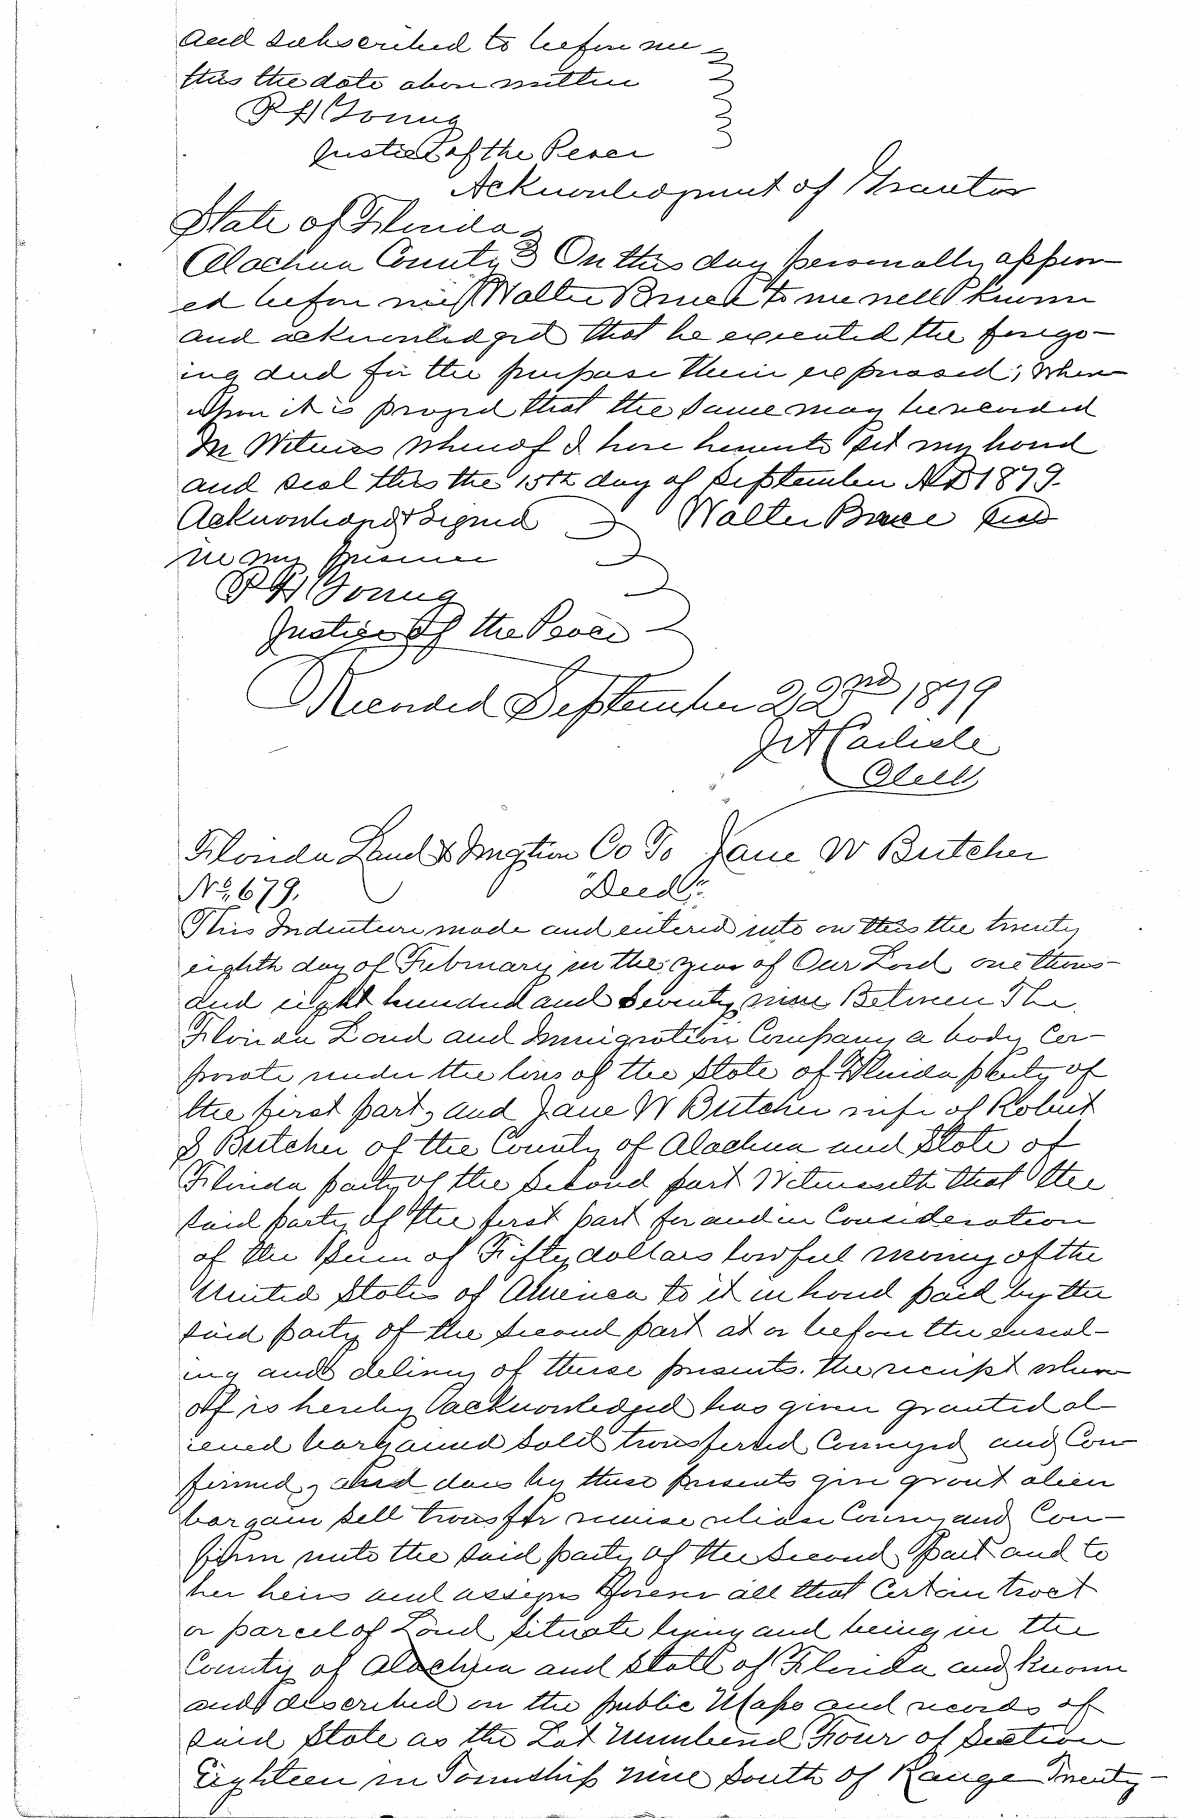 and subscribed to before me
this the date above written
P H Young
Justice of the Peace
Acknowledgment of Grantor
State of Florida
Alachua County } On this day personally appear-
ed before me Walter Bruce to me well known
and acknowledged that he executed the forego-
ing deed for the purpose therein expressed; Where-
upon it is prayed that the same may be recorded
In Witness Whereof I have hereunto set my hand
and seal this the 15th day of September AD 1879.
Acknowledged & Signed } Walter Bruce Seal
in my presence
P H Young
Justice of the Peace
Recorded September 22nd 1879
J A Carlisle
Clerk
Florida Land & Imgtion Co To Jane W Butcher
No. 679. "Deed".
This Indenture made and entered into on this the twenty
eighth day of February in the year of Our Lord one thous-
and eight hundred and seventy nine Between The
Florida Land and Immigration Company a body Cor-
porate under the laws of the State of Florida party of
the first part, and Jane W Butcher wife of Robert
S Butcher of the County of Alachua and State of
Florida party of the second part Witnesseth that the
said party of the first part for and in Consideration
of the Sum of Fifty dollars lawful money of the
United States of America to it in hand paid by the
said party of the second part at or before the enseal-
ing and delivery of these presents. the receipt where-
of is hereby acknowledged has given granted al-
iened bargained sold transferred Conveyed and Con-
firmed, and does by these presents give grant alien
bargain sell transfer remise release Convey and Con-
firm unto the said party of the second Part and to
her heirs and assigns forever all that Certain tract
or parcel of Land situate lying and being in the
County of Alachua and State of Florida and known
and described on the public Maps and records of
said State as the Lot Numbered Four of Section
Eighteen in Township nine South of Range Twenty-